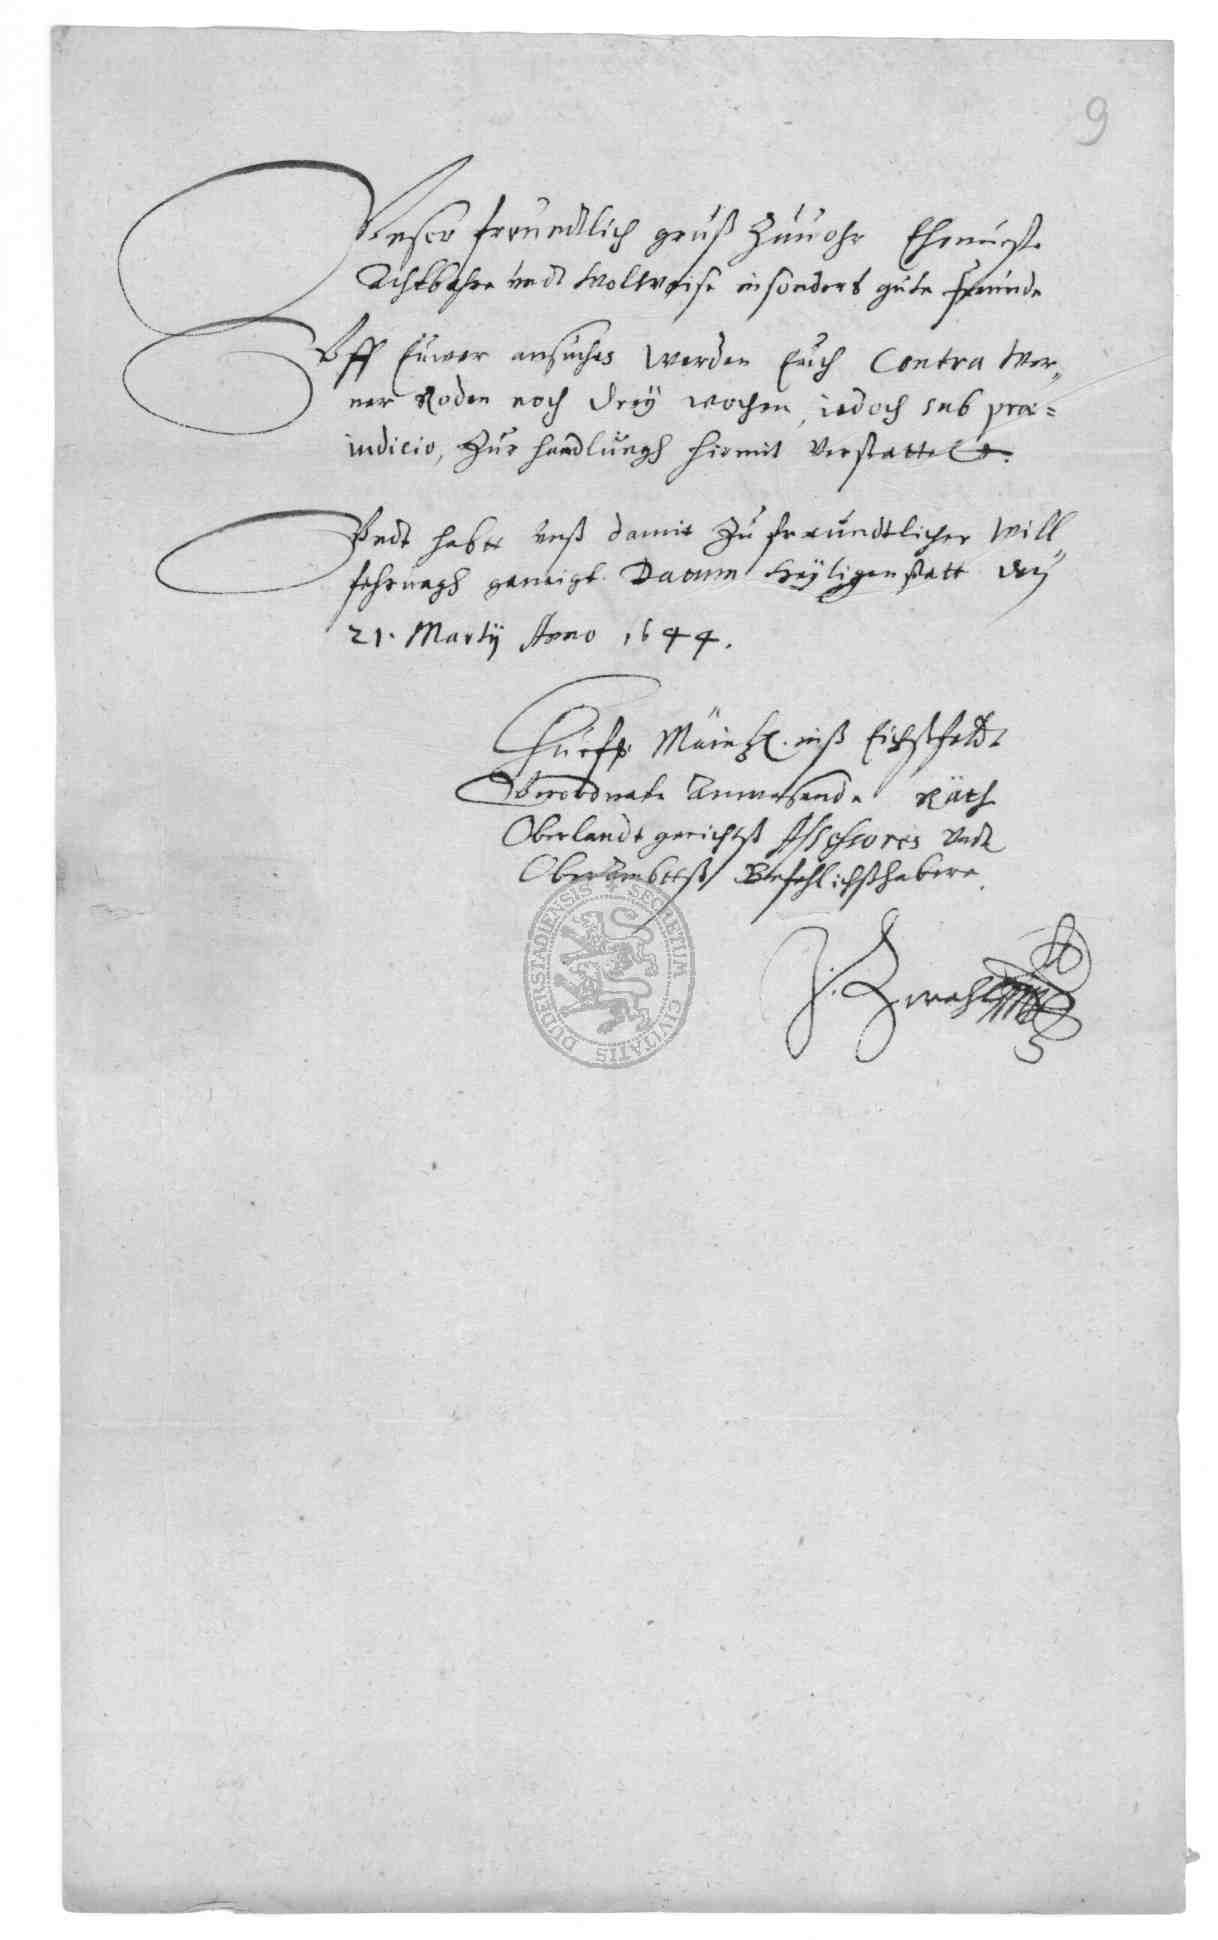 9
Vnser freundtlich gruß Zuuohr Ehrnueste
Achtbahre vndt Wollweise insonders gute freunde
Vff Euwer ansuches Werden Euch Contra Wer„
ner Roden noch drey wochen, iedoch sub præ=
iudicio, Zur handlungh hiermit Verstattett.
Vndt habtt vnß damit Zu freundtlicher Will
fehrungh geneigt. Datum Heyligenstatt den
21. Martij Anno 1644.
Churfp. Mäintz. vffß Eichßfeldt
Verordnete Anwesende Räth
Oberlandtgerichtß Assessores vndt
Oberambttß Befehlichßhabere
SECRETUM CIVITATIS DUDERSTADIENSIS